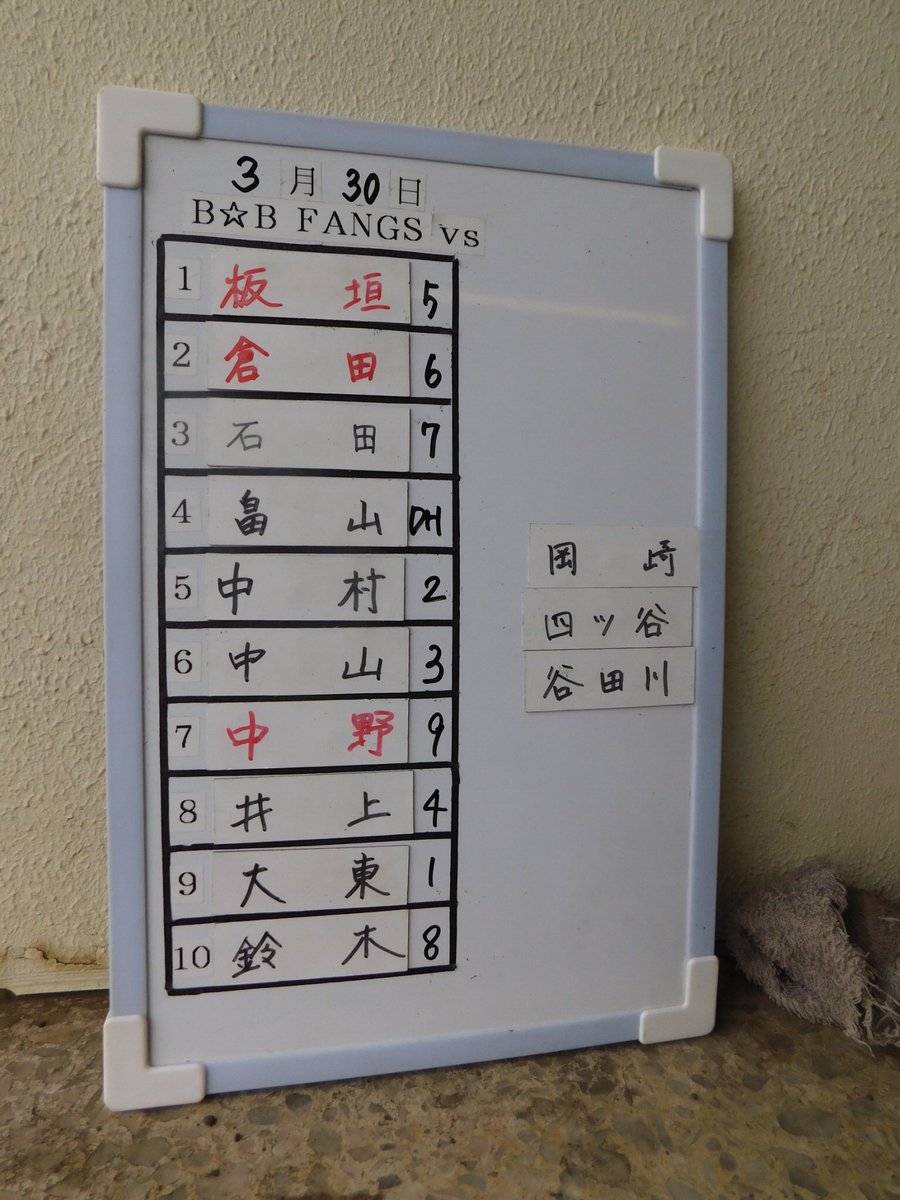 3月30日
B☆B FANGS vs
1 板垣 5
2 倉田 6
3 石田 7
4 畠山 DH
5 中村 2
6 中山 3
7 中野 9
8 井上 4
9 大東 1
10 鈴木 8
岡崎
四ツ谷
谷田川